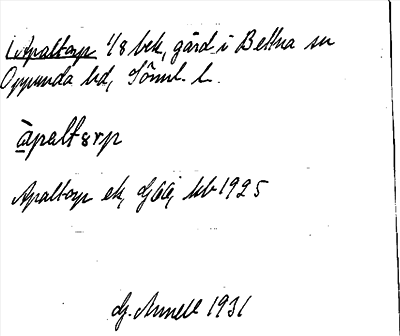 Apaltorp 1/8 bek, gård i Bettna sn
Oppunda hd, Söml. l.
àpaltɜrp
Apaltorp ek, GAA, kb 1925
G. Annell 1931